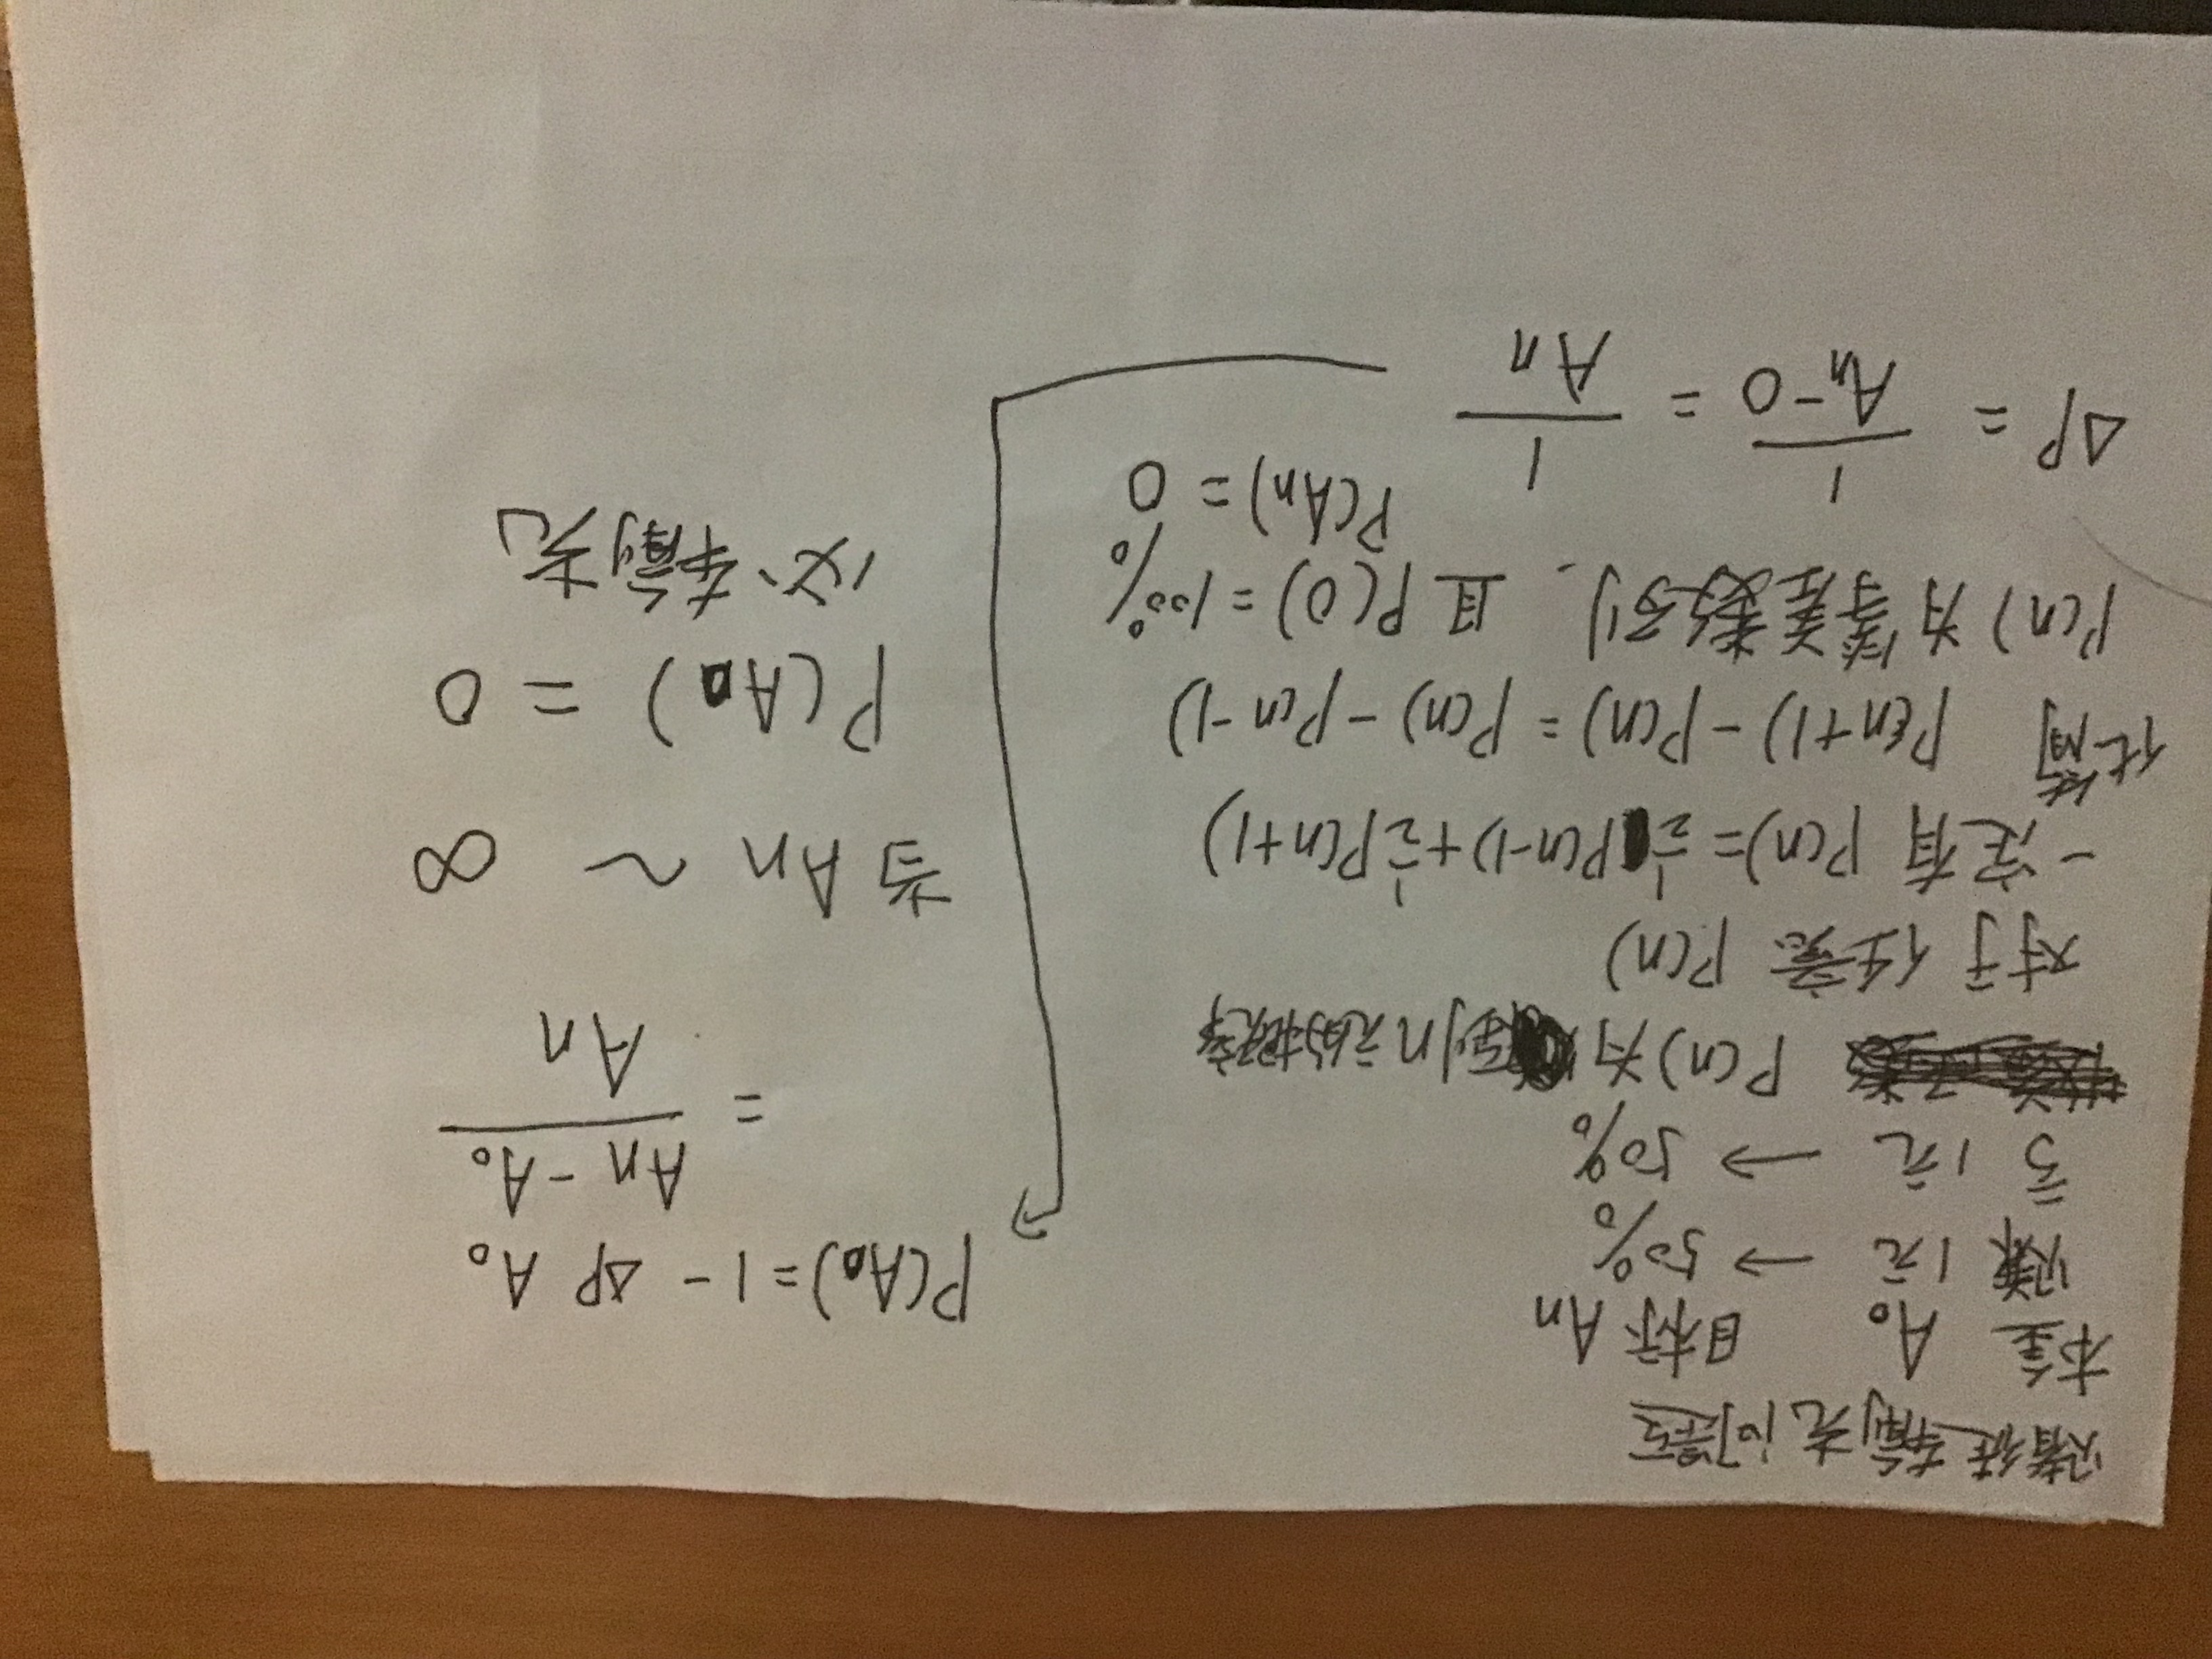 赌徒输光问题
本金 A₀ 目标 An
赚 1元 → 50%
亏 1元 → 50%
P(n) 为 到n元的概率
对于 任意 P(n)
一定有 P(n) = ½P(n-1) + ½P(n+1)
化简 P(n+1) - P(n) = P(n) - P(n-1)
P(n) 为等差数列. 且 P(0) = 100%
P(An) = 0
ΔP = 1/(An-0) = 1/An
P(A₀) = 1 - ΔP A₀
= (An - A₀)/An
当 An ~ ∞
P(A₀) = 0
必、输光